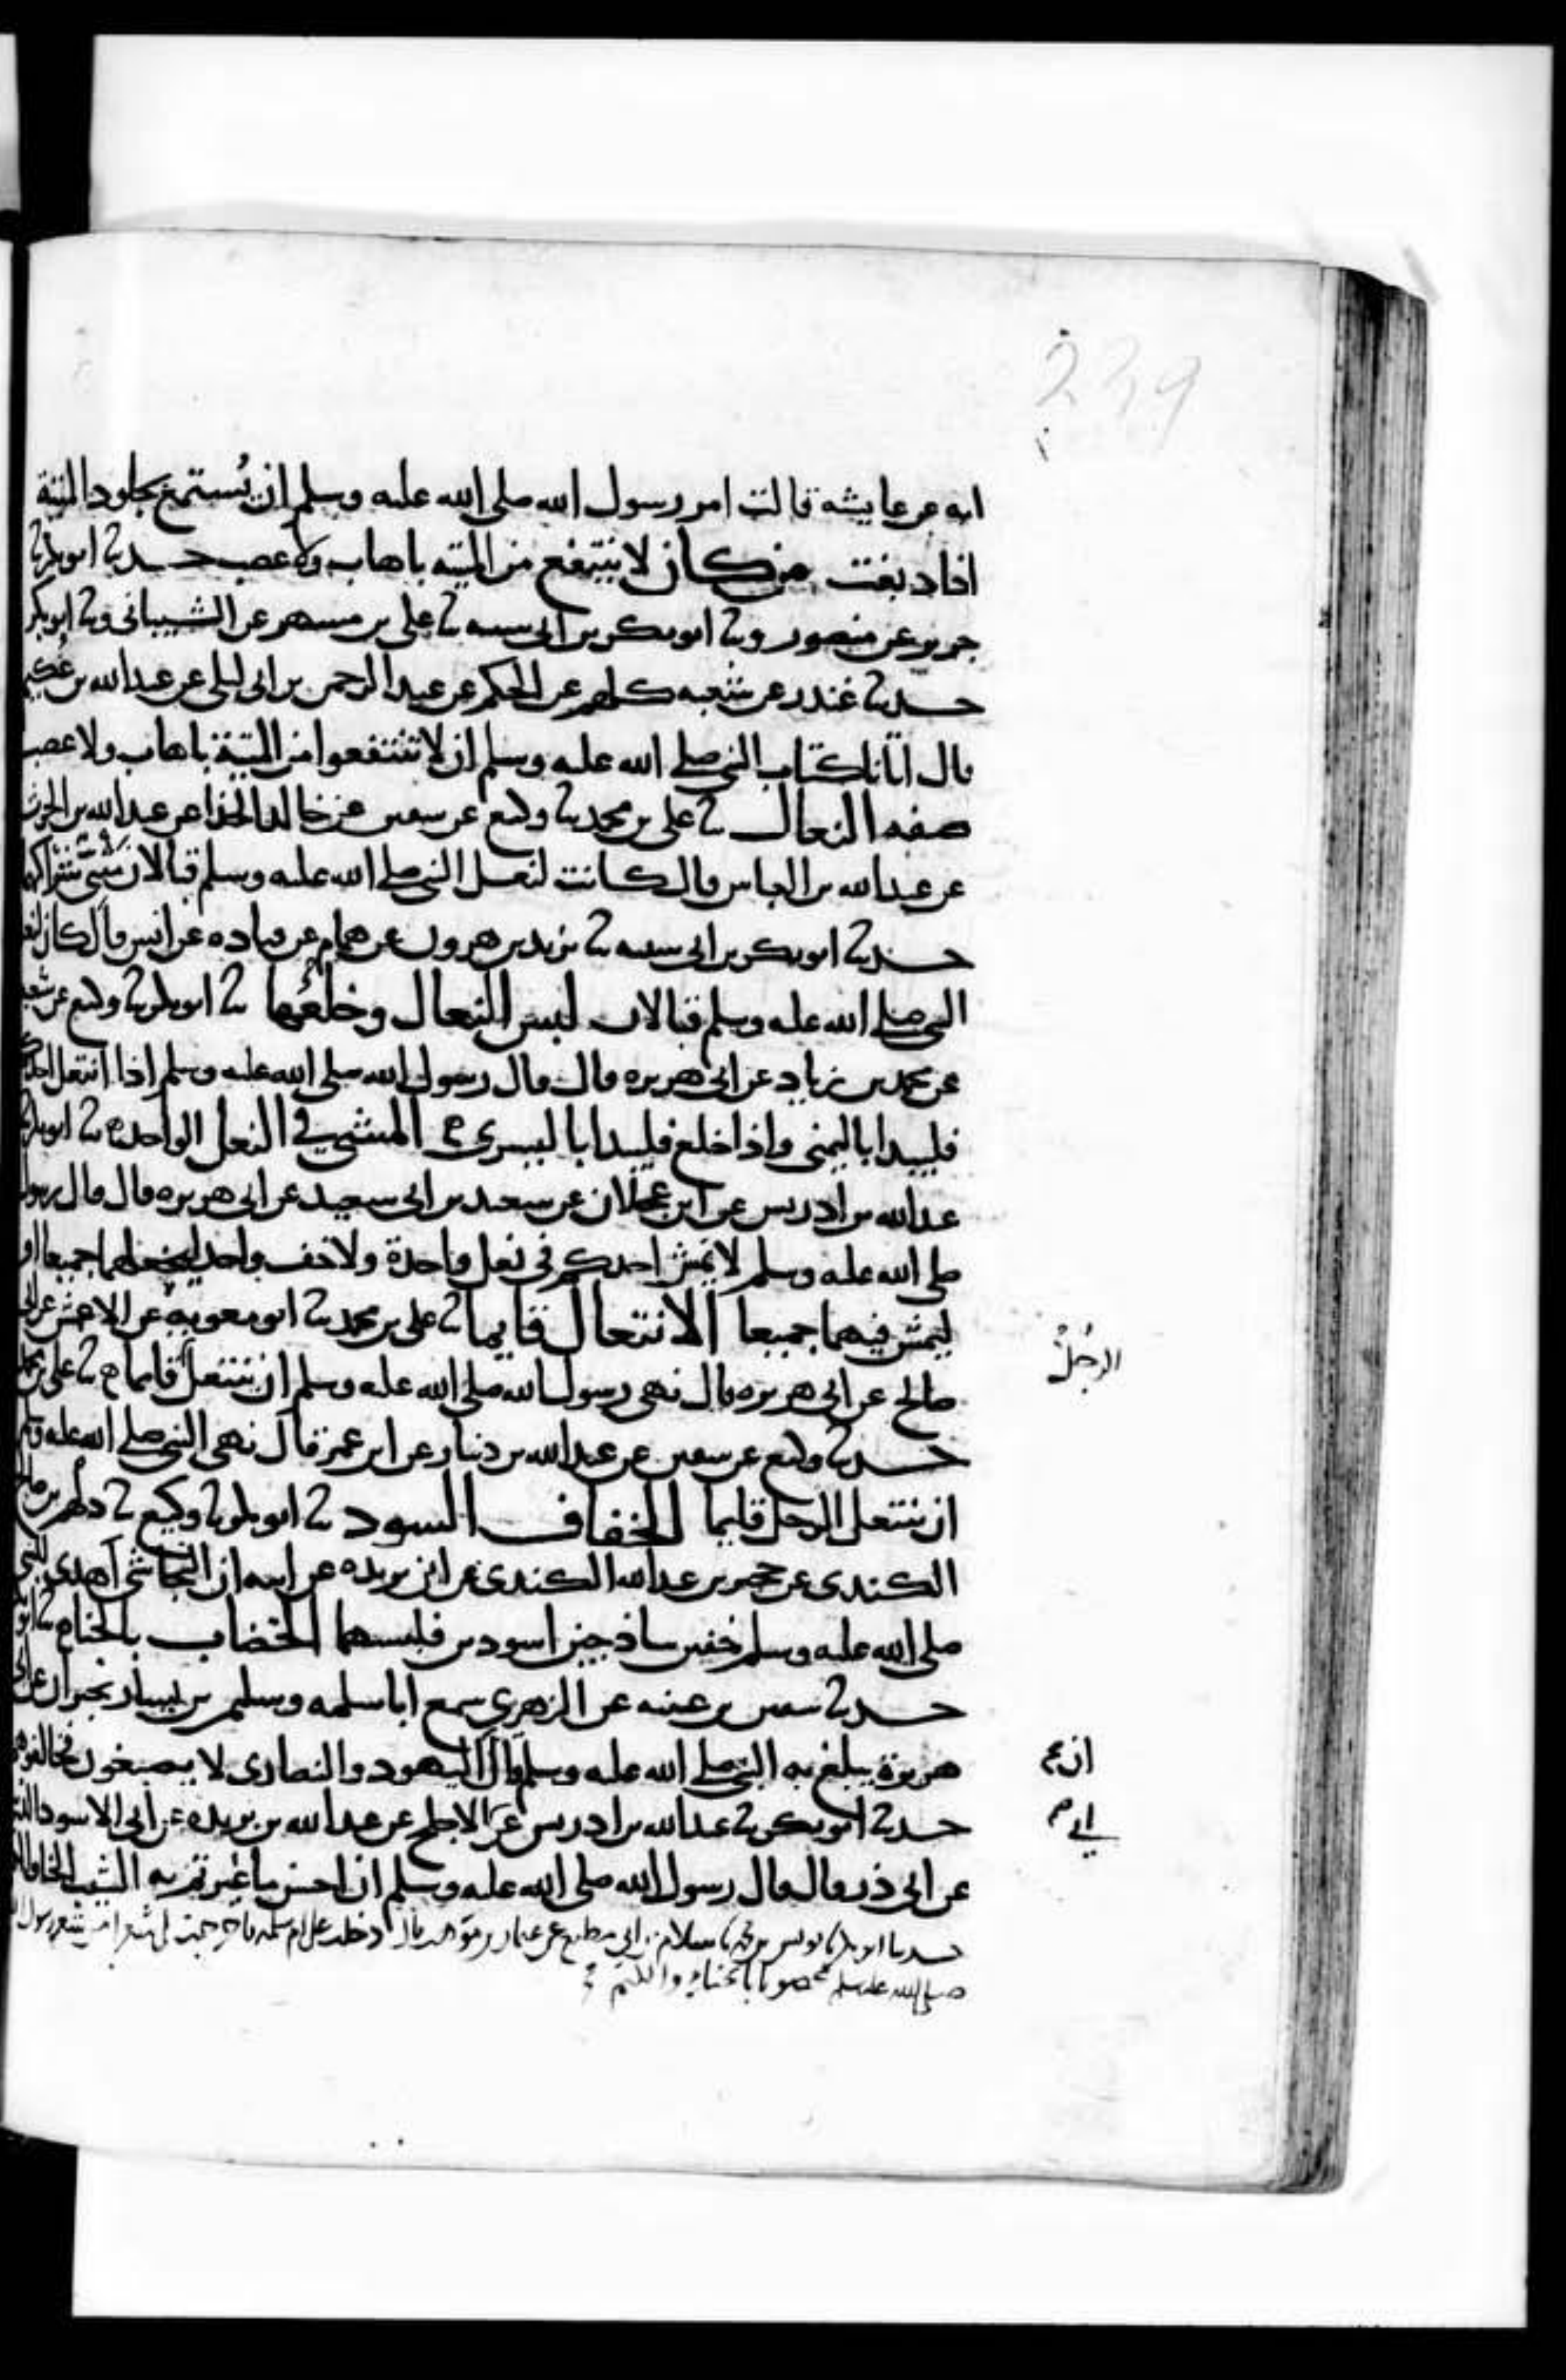 239
امه عن عايشة قالت امر رسول الله صلى الله عليه وسلم ان يُستمتع بجلود الميتة
اذا دبغت من كان لا ينتفع من الميته باهاب ولا عصب حدثنا ابو بكر ثنا
جرير عن منصور وثنا ابو بكر بن ابى شيبه ثنا على بن مسهر عن الشيبانى وثنا ابو بكر
حدثنا غندر عن شعبه كلهم عن الحكم عن عبد الرحمن بن ابى ليلى عن عبد الله بن عُكيم
قال اتانا كتاب النبى صلى الله عليه وسلم ان لا تنتفعوا من الميتة باهاب ولا عصب
صفه النعال ثنا على بن محمد ثنا وكيع عن سفين عن خالد الحذا عن عبد الله بن الحرث
عن عبد الله بن العباس قال كانت لنعل النبى صلى الله عليه وسلم قبالان مثنى شراكهما
حدثنا ابو بكر بن ابى شيبه ثنا يزيد بن هرون عن همام عن قتاده عن انس قال كان لنعل
النبى صلى الله عليه وسلم قبالان لبس النعال وخلعُها ثنا ابو بكر ثنا وكيع عن شعبة
عن محمد بن زياد عن ابى هريره قال قال رسول الله صلى الله عليه وسلم اذا انتعل احدكم
فليبدا باليمنى واذا خلع فليبدا باليسرى المشي في النعل الواحده ثنا ابو بكر ثنا
عبد الله بن ادريس عن ابن عجلان عن سعيد بن ابى سعيد عن ابى هريره قال قال رسول
صلى الله عليه وسلم لا يمش احدكم فى نعل واحدة ولا خف واحد ليخلعهما جميعا او
ليمش فيهما جميعا الانتعال قايما ثنا على بن محمد ثنا ابو معويه عن الاعمش عن ابى
الرجلُ
صالح عن ابى هريره قال نهى رسول الله صلى الله عليه وسلم ان ينتعل قايما ثنا على بن محمد
حدثنا وكيع عن سفين عن عبد الله بن دينار عن ابن عمر قال نهى النبى صلى الله عليه وسلم
ان ينتعل الرجل قايما الخفاف السود ثنا ابو بكر ثنا وكيع ثنا دلهم بن صالح
الكندى عن حجير بن عبد الله الكندى عن ابن بريده عن ابيه ان النجاشى اهدى للنبى
صلى الله عليه وسلم خفين ساذجين اسودين فلبسهما الخضاب بالحناء ثنا ابو بكر
حدثنا سفين بن عيينه عن الزهري سمع ابا سلمه وسليمن بن يسار يخبران عن ابى
هريرة يبلغ به النبى صلى الله عليه وسلم قال اليهود والنصارى لا يصبغون فخالفوهم
ان
حدثنا ابو بكر ثنا عبد الله بن ادريس عن الاجلح عن عبد الله بن بريده عن ابى الاسود الديلى
عن ابى ذر قال قال رسول الله صلى الله عليه وسلم ان احسن ما غيرتم به الشيب الحنا والكتم
حدثنا ابو بكر ثنا يونس بن محمد ثنا سلام بن ابي مطيع عن عثمان بن موهب قال دخلت على ام سلمه فاخرجت الى شعرا من شعر رسول الله
صلى الله عليه وسلم مخضوبا بالحناء والكتم